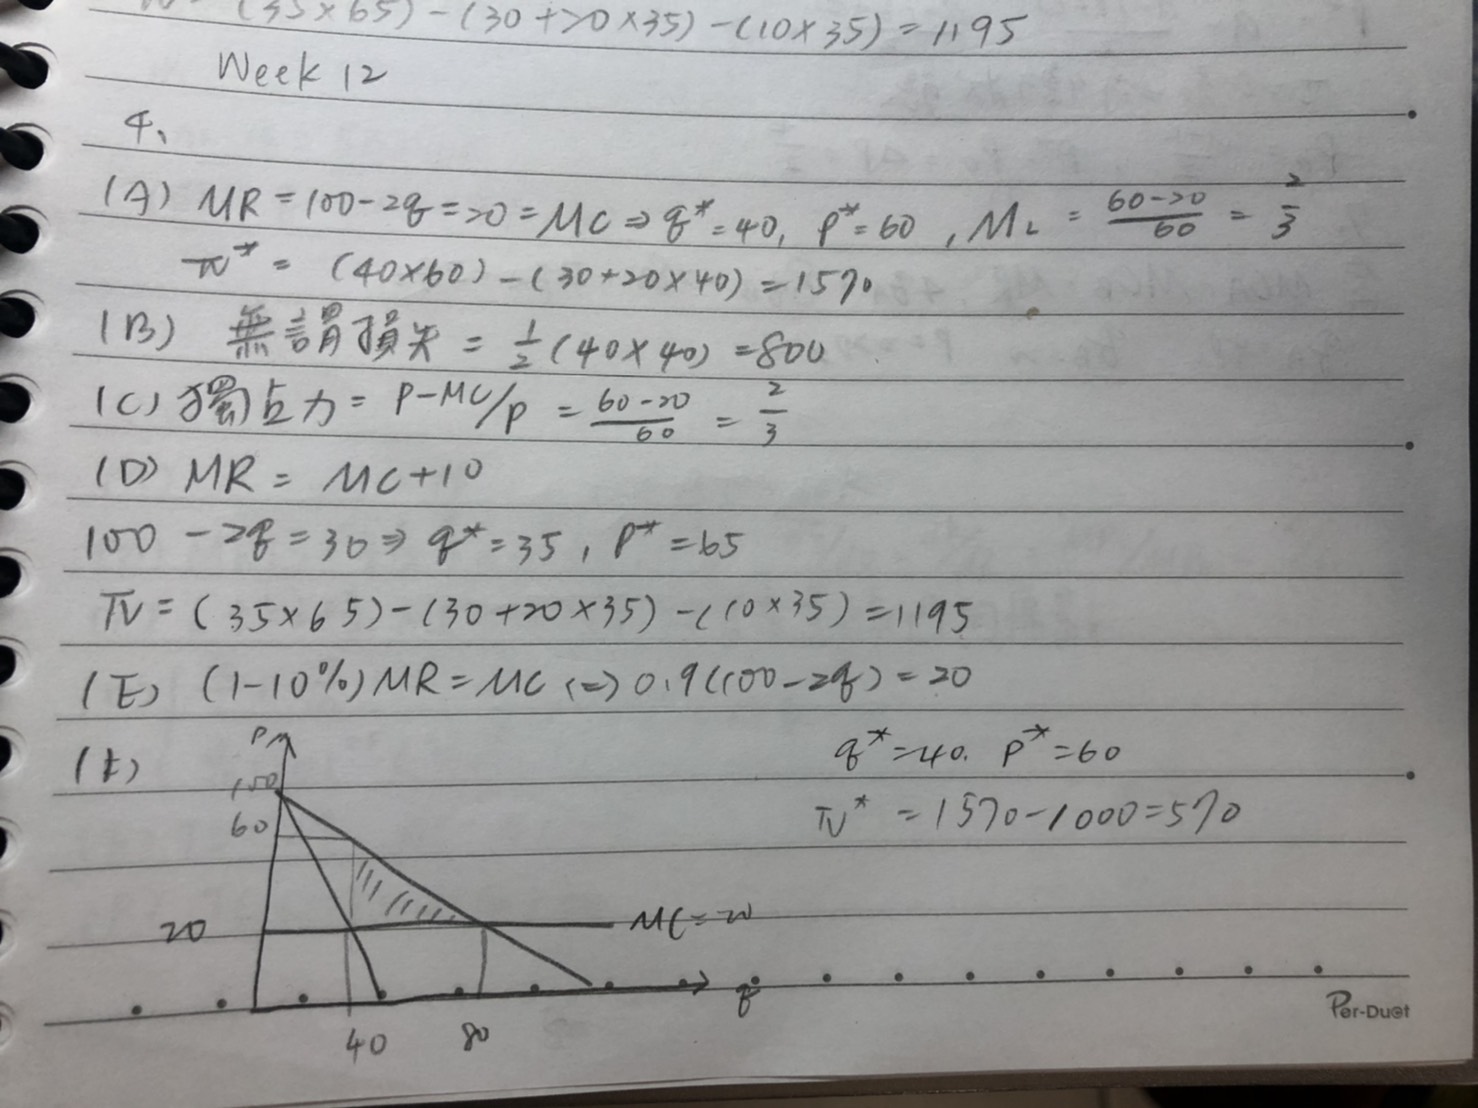 π = (35×65)-(30+20×35)-(10×35)=1195
Week 12
4、
(A) MR=100-2q=20=MC⇒q*=40, P*=60, ML = 60-20/60 = 2/3
π* = (40×60)-(30+20×40)=1570
(B) 無謂損失 = 1/2(40×40)=800
(C) 獨占力= P-MC/P = 60-20/60 = 2/3
(D) MR = MC+10
100-2q=30⇒q*=35, P*=65
π=(35×65)-(30+20×35)-(10×35)=1195
(E) (1-10%)MR=MC (=) 0.9(100-2q)=20
q*=40. P*=60
π* =1570-1000=570
P
100
60
20
MC=20
q
40 80
Per-Duet